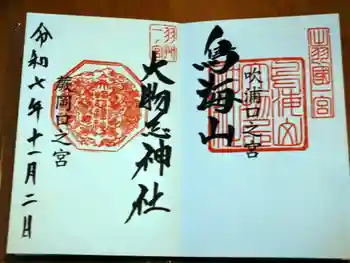 出羽國一宮
鳥海山
吹浦口之宮
羽州一ノ宮
大物忌神社
蕨岡口之宮
令和七年十一月二日